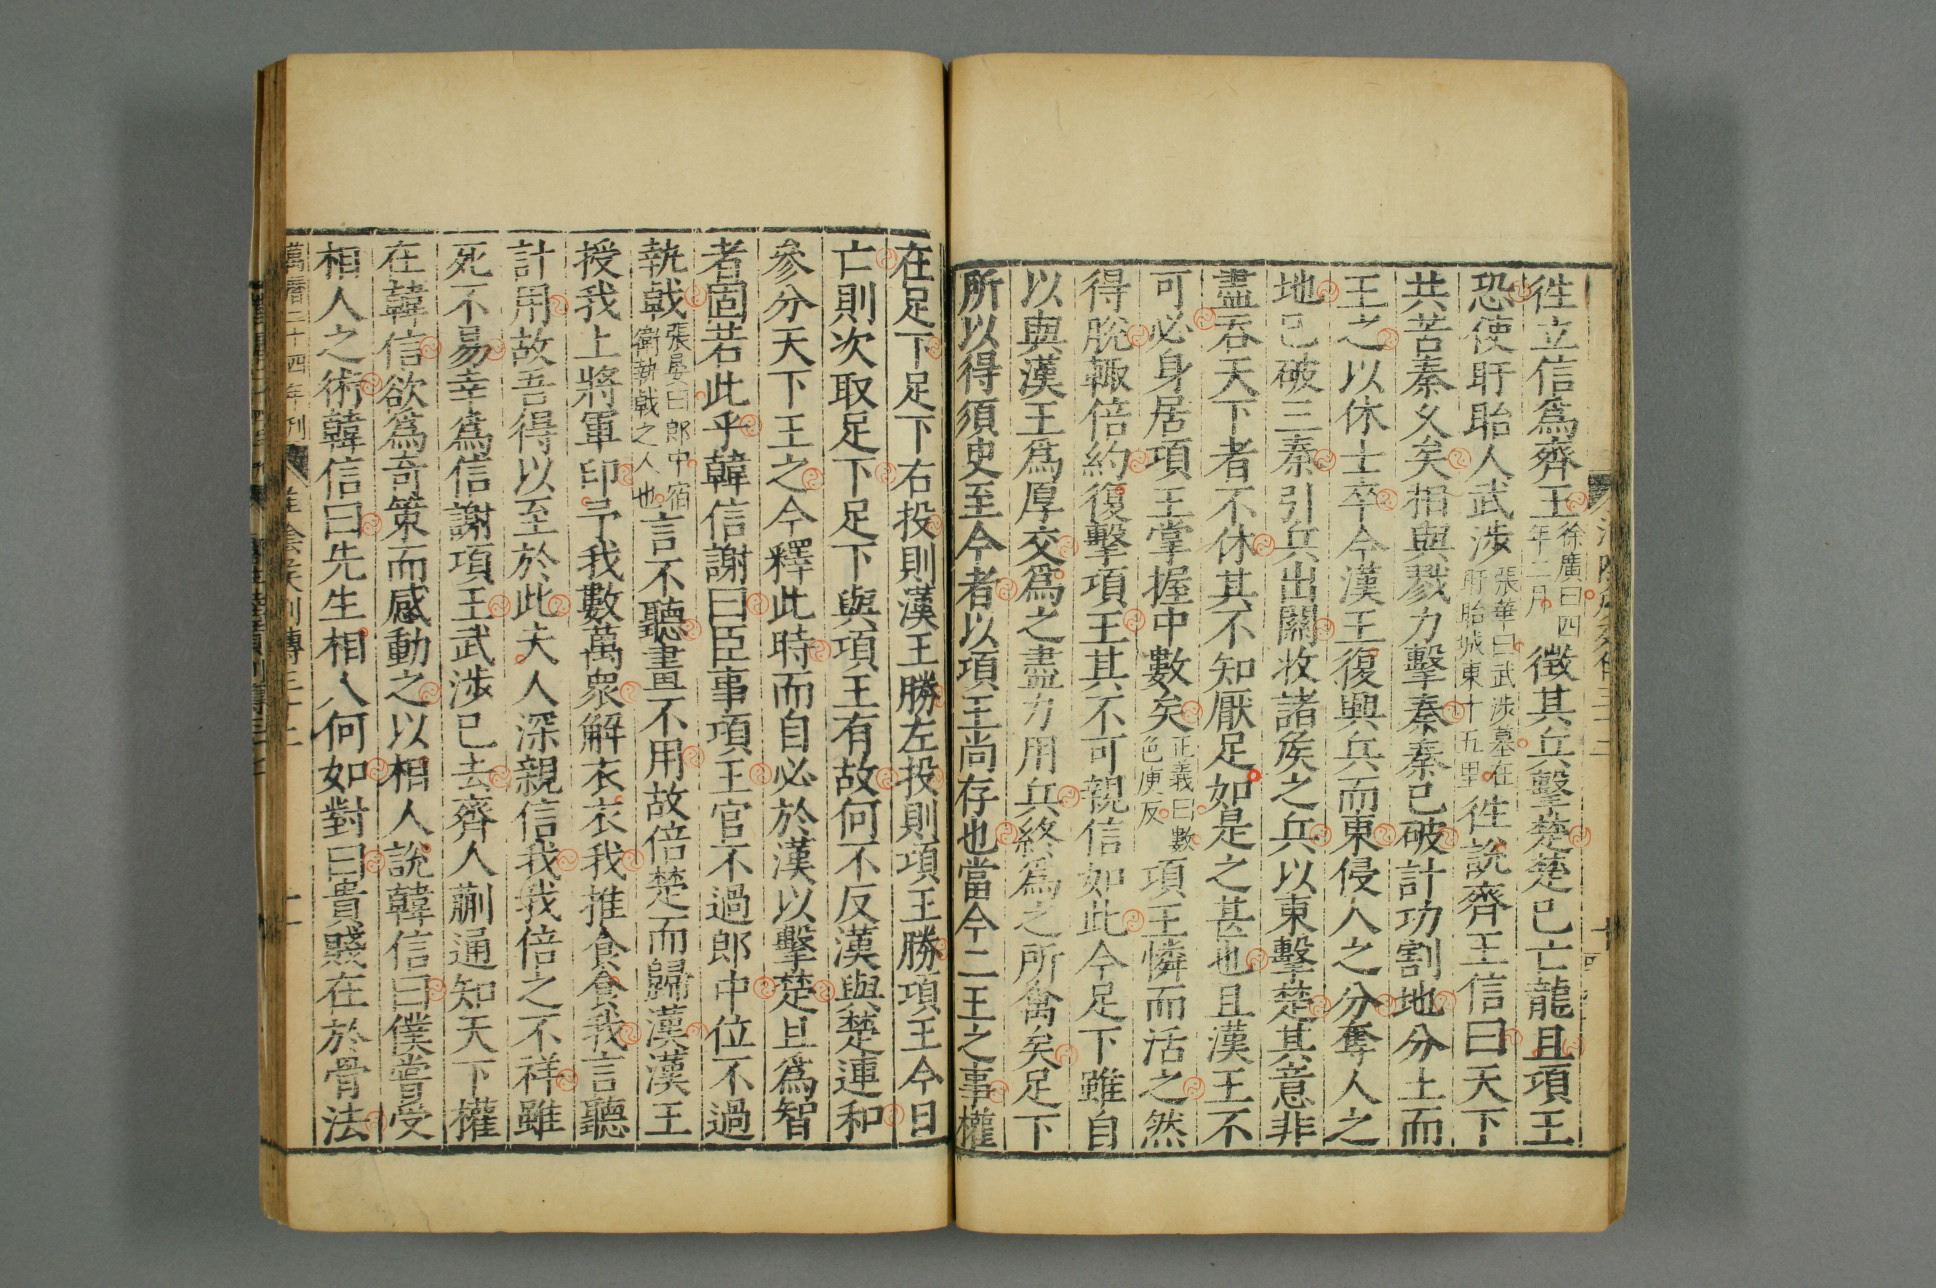 徃立信爲齊王徐廣曰四年二月徵其兵擊楚楚已亡龍且項王
恐使盱眙人武涉張華曰武涉墓在盱眙城東十五里徃說齊王信曰天下
共苦秦乆矣相與戮力擊秦秦已破計功割地分土而
王之以休士卒今漢王復興兵而東侵人之分奪人之
地已破三秦引兵出關收諸矦之兵以東擊楚其意非
盡吞天下者不休其不知厭足如是之甚也且漢王不
可必身居項王掌握中數矣正義曰數色庾反項王憐而活之然
得脫輒倍約復擊項王其不可親信如此今足下雖自
以與漢王爲厚交爲之盡力用兵終爲之所禽矣足下
所以得須臾至今者以項王尚存也當今二王之事權
在足下足下右投則漢王勝左投則項王勝項王今日
亡則次取足下足下與項王有故何不反漢與楚連和
參分天下王之今釋此時而自必於漢以擊楚且爲智
者固若此乎韓信謝曰臣事項王官不過郎中位不過
執戟張晏曰郎中宿衛執戟之人也言不聽畫不用故倍楚而歸漢漢王
授我上將軍印予我數萬衆解衣衣我推食食我言聽
計用故吾得以至於此夫人深親信我我倍之不祥雖
死不易幸爲信謝項王武涉已去齊人蒯通知天下權
在韓信欲爲奇策而感動之以相人說韓信曰僕嘗受
相人之術韓信曰先生相人何如對曰貴賤在於骨法
萬曆二十四年刊
淮陰矦列傳三十二